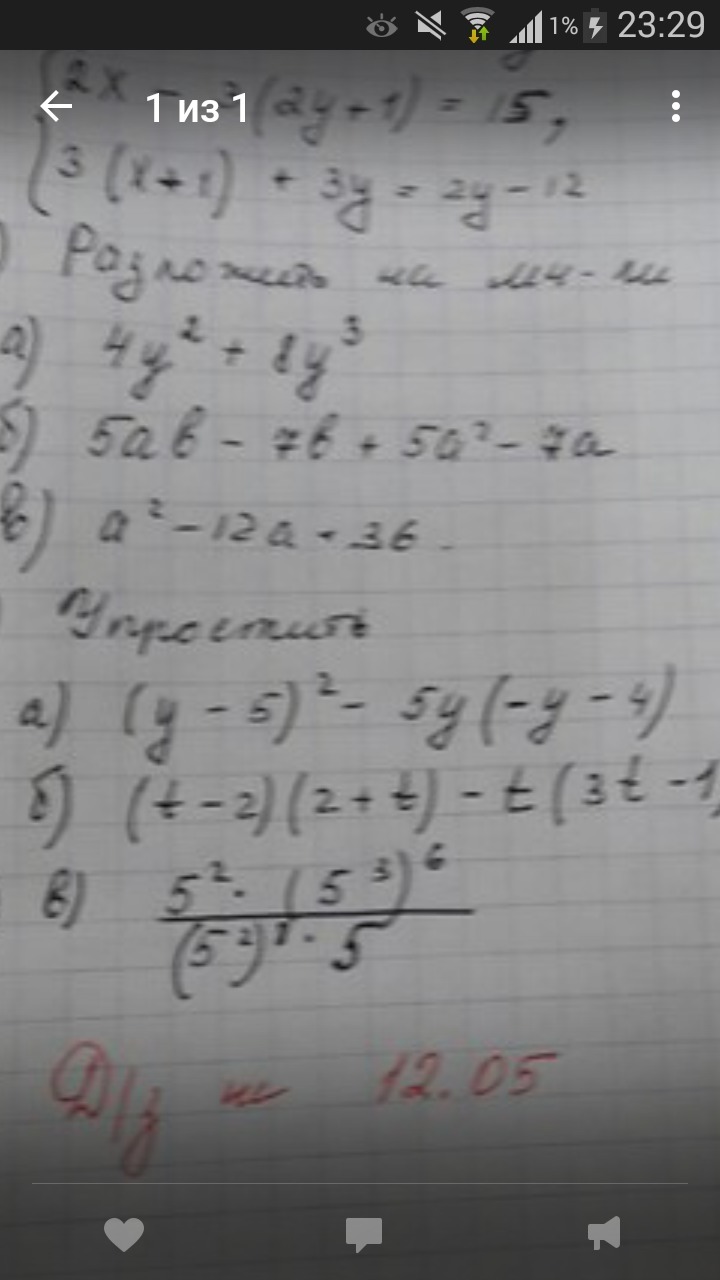 1% 23:29
1 из 1
2x - 3(2y+1) = 15,
3(x+1) + 3y = 2y - 12
) Разложить на мн-ли
а) 4y² + 8y³
б) 5ab - 7b + 5a² - 7a
в) a² - 12a + 36.
Упростить
а) (y - 5)² - 5y(-y - 4)
б) (t - 2)(2 + t) - t(3t - 1)
в) 5² · (5³)⁶
(5²) · 5
Д/з н 12.05